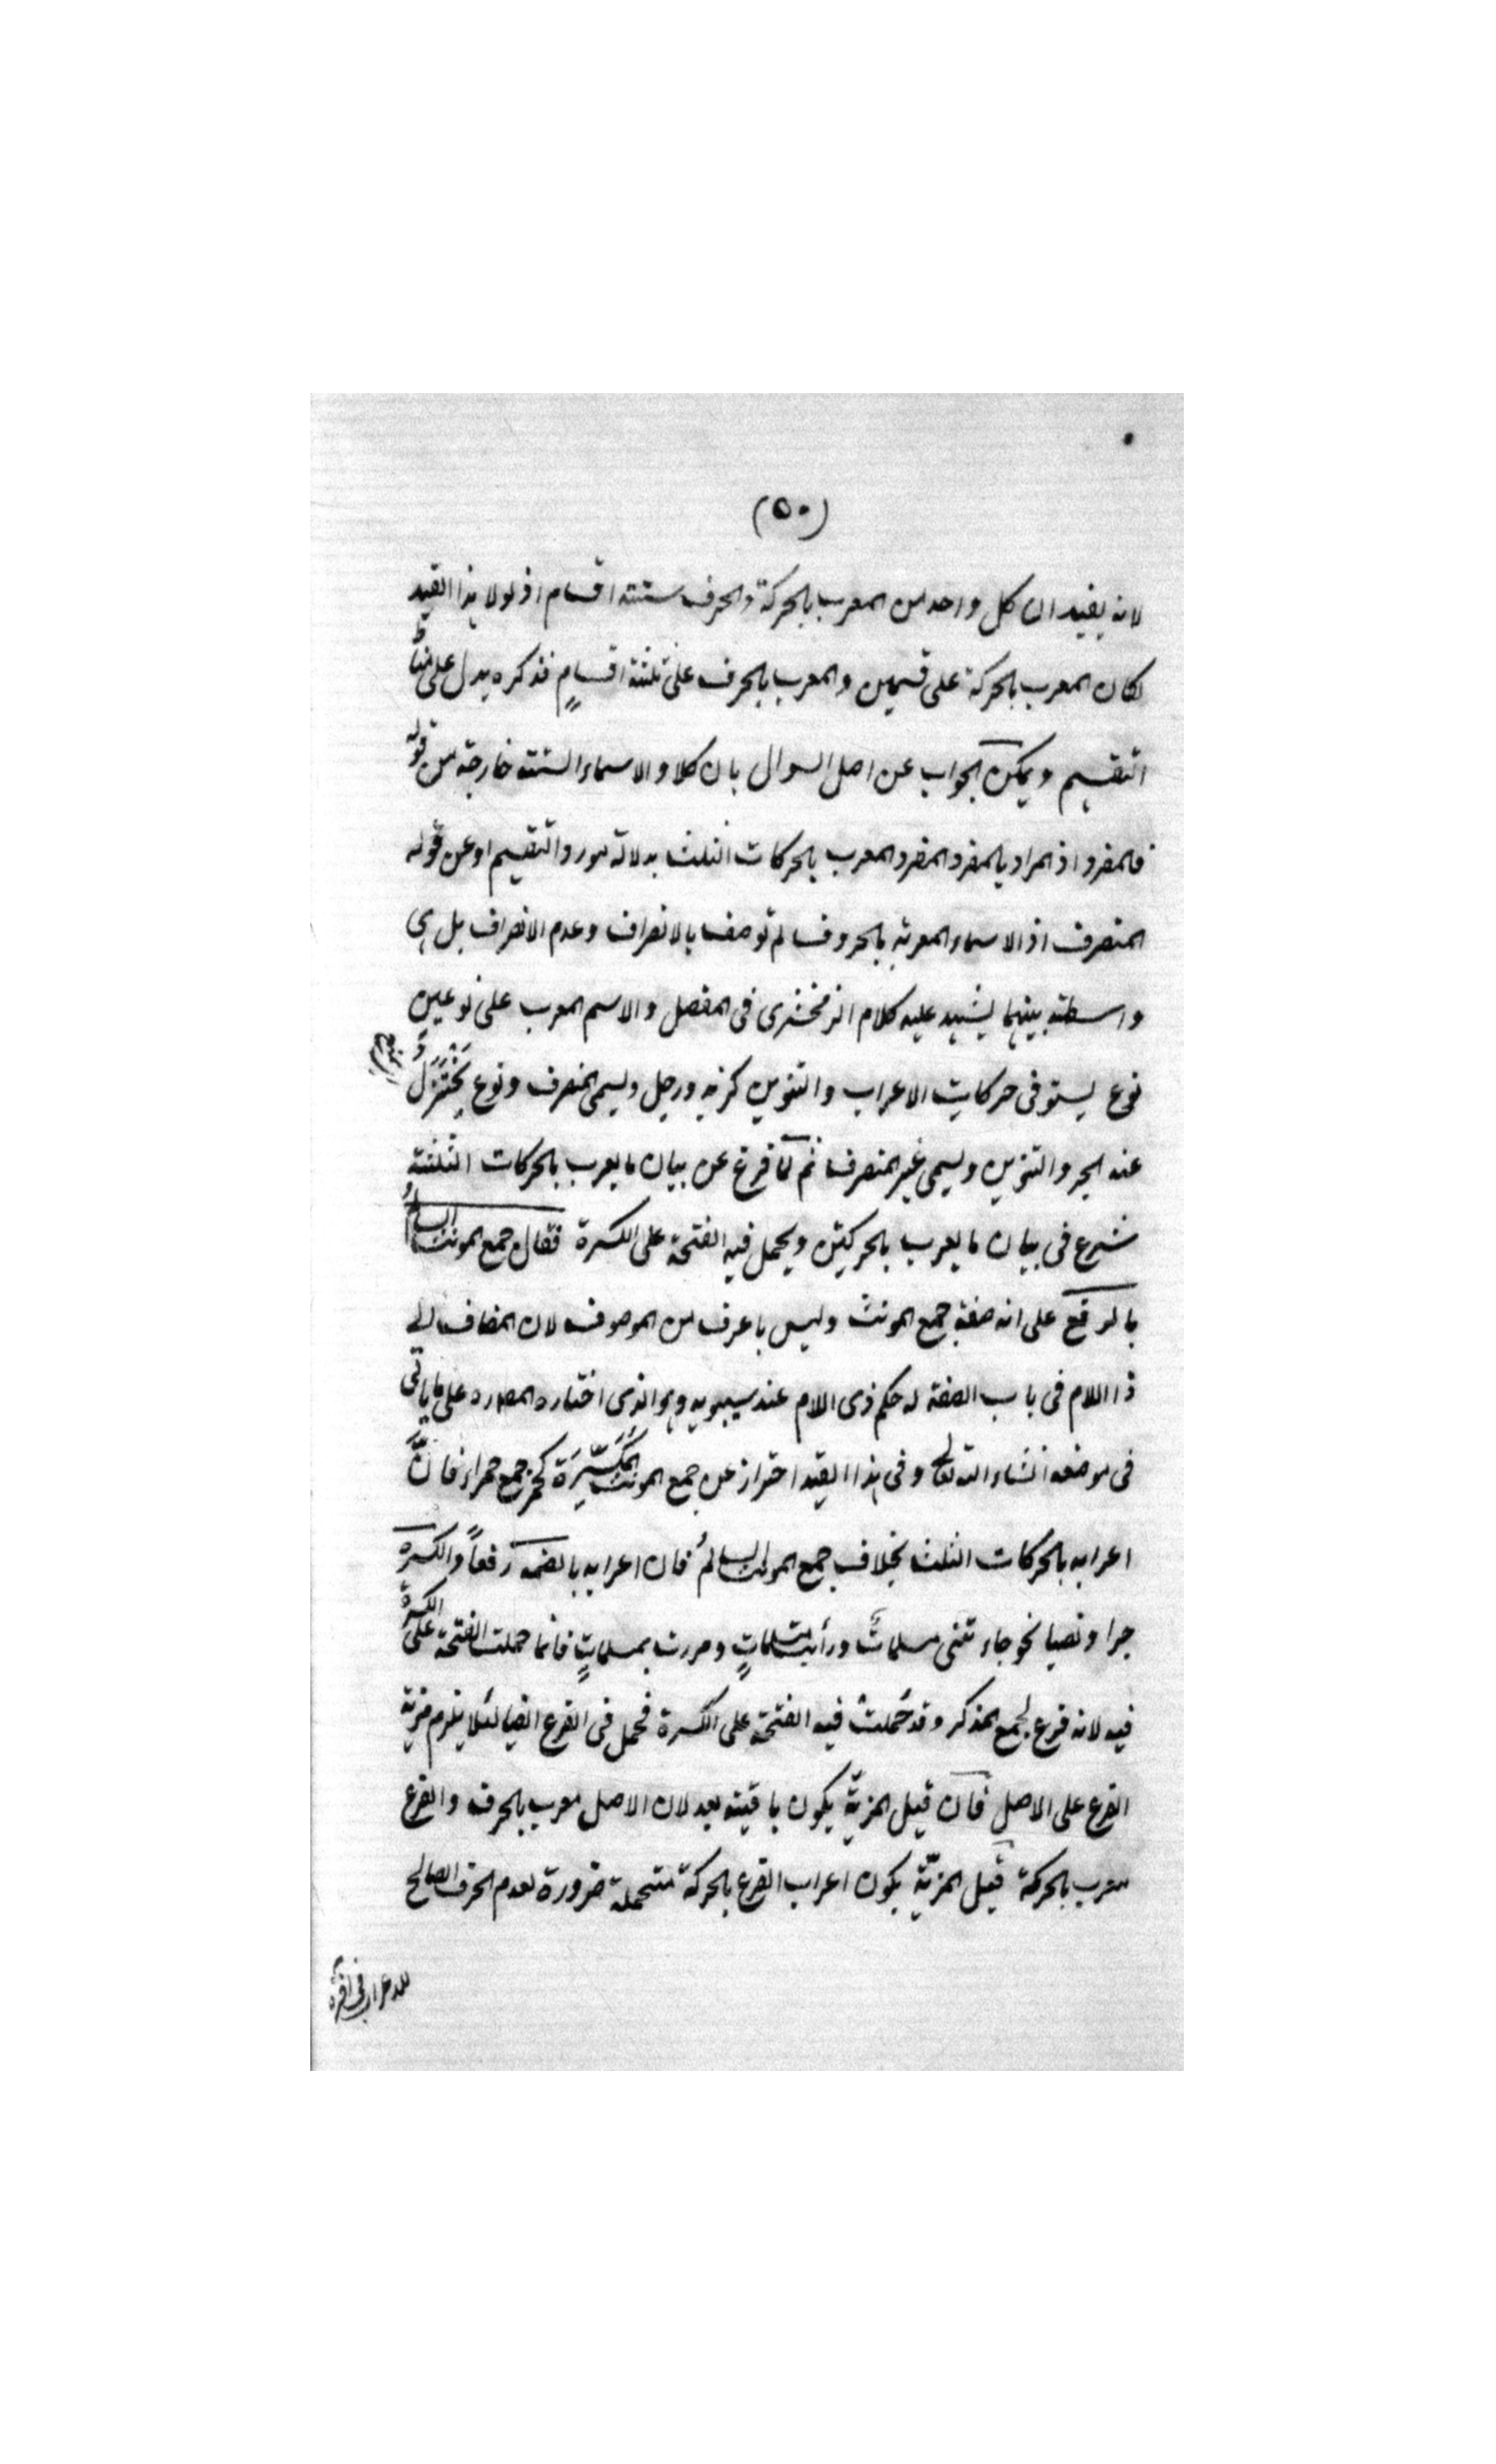 (٥٠)
لانه يفيد ان كل واحد من المعرب بالحركة والحرف ستته اقسام اذ لولا هذا القيد
لكان المعرب بالحركة على قسمين والمعرب بالحرف على ثلثة اقسامٍ فذكره يدل على
التقسيم ويمكن الجواب عن اصل السوال بان كلا والاسماء الستته خارجة من قوله
فالمفرد اذ المراد بالمفرد المفرد المعرب بالحركات الثلث بدلالة مورد التقسيم او عن قوله
المنصرف اذ الاسماء المعربة بالحروف لم توصف بالانصراف وعدم الانصراف بل هى
واسطة بينهما يشهد عليه كلام الزمخشرى فى المفصل والاسم المعرب على نوعين
نوع يستوفى حركات الاعراب والتنوين كزيد ورجل ويسمى المنصرف ونوع يُخْتَزَلُ
عنه الجر والتنوين ويسمى غير المنصرف ثم لمّا فرغ عن بيان ما يعرب بالحركات الثلثة
شرع فى بيان ما يعرب بالحركتين ويحمل فيه الفتحة على الكسرة فقال جمع المونث السالمُ
بالرفع على انه صفة جمع المونث وليس باعرف من الموصوف لان المضاف الى
ذا اللام فى باب الصفة له حكم ذى اللام عند سيبويه وهو الذى اختاره المصـ ره على ما ياتى
فى موضعه انشاء الله تعالى وفى هذا القيد احتراز عن جمع المونث المُكَسَّرَة كحُمر جمع حمراء فانَّ
اعرابه بالحركات الثلث بخلاف جمع المونث السالمُ فان اعرابه بالضمة رفعاً والكسرة
جرا ونصبا نحو جاءتنى مسلماتٌ ورأيت مسلماتٍ ومررت بمسلماتٍ فانما حملت الفتحة على الكسرة
فيه لانه فرع لجمع المذكر وقد حُملت فيه الفتحة على الكسرة فحمل فى الفرع ايضا لئلا يلزم مزية
الفرع على الاصل فان قيل المزيّة يكون باقية بعد لان الاصل معرب بالحرف والفرع
معرب بالحركة قيل المزيّة يكون اعراب الفرع بالحركة متحملة ضرورة لعدم الحرف الصالح
للاعراب فى آخره